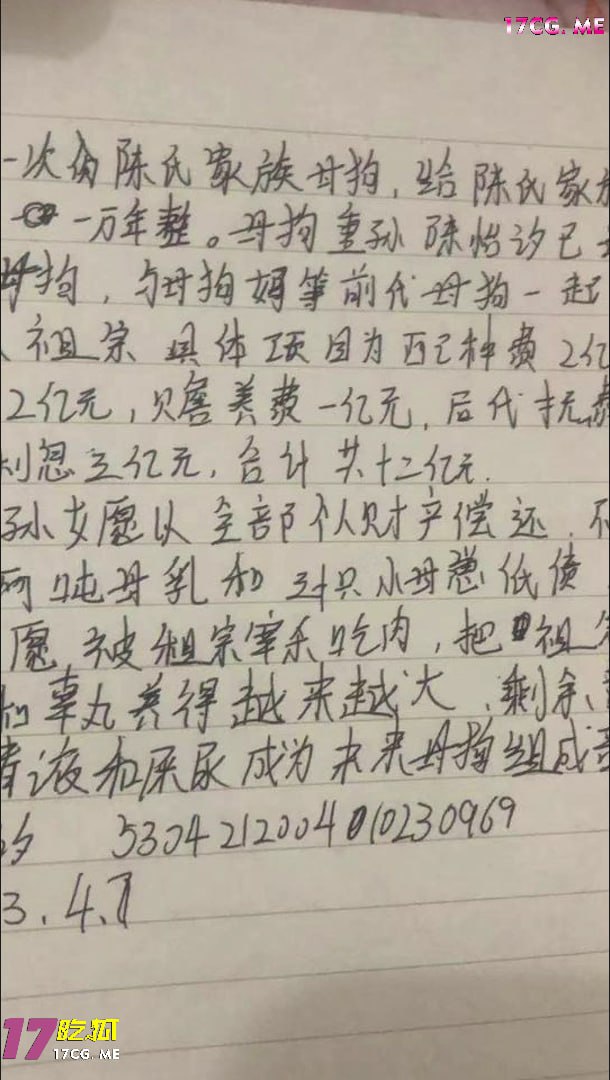 17CG.ME
一次为陈氏家族母狗，给陈氏家
一万年整。母狗重孙 [姓名略] 已
母狗，与母狗妈等前代母狗一起
祖宗 具体项目为配种费 2亿
2亿元，赡养费一亿元，后代抚
利息五亿元，合计共十二亿元.
孙女愿以全部个人财产偿还.
吨母乳和 只小母 低债
愿被祖宗宰杀吃肉，把祖
睾丸养得越来越大，剩余
液和屎尿成为未来母狗组成
[证件号码略]
3.4.7
17吃瓜
17CG.ME